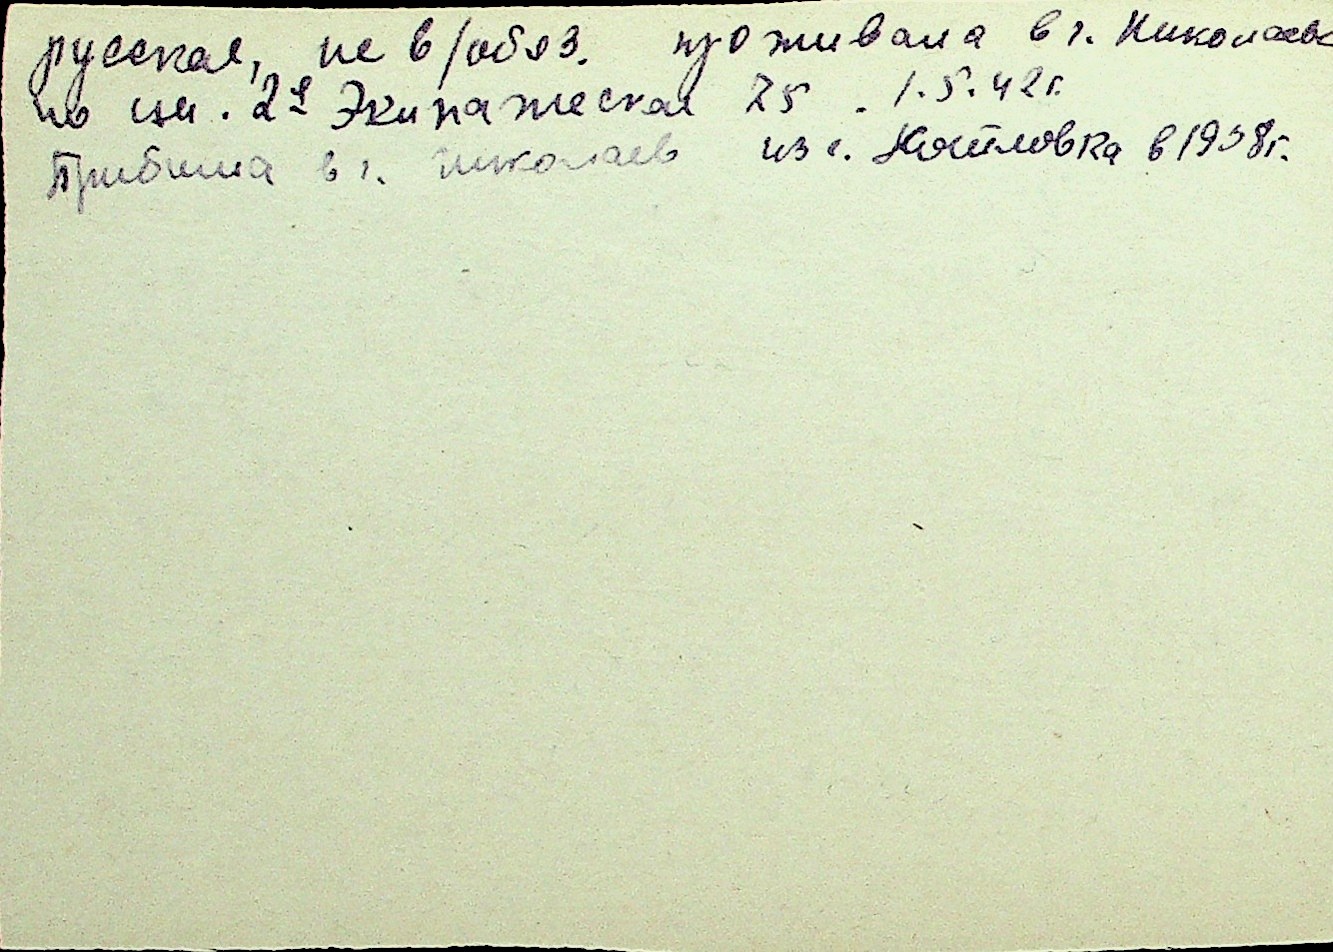 русская, не в/обяз. проживала в г. Николаев
по ул. 2я Экипажеская 25. 1.5.42г.
Прибыла в г. Николаев из г. в 1938г.